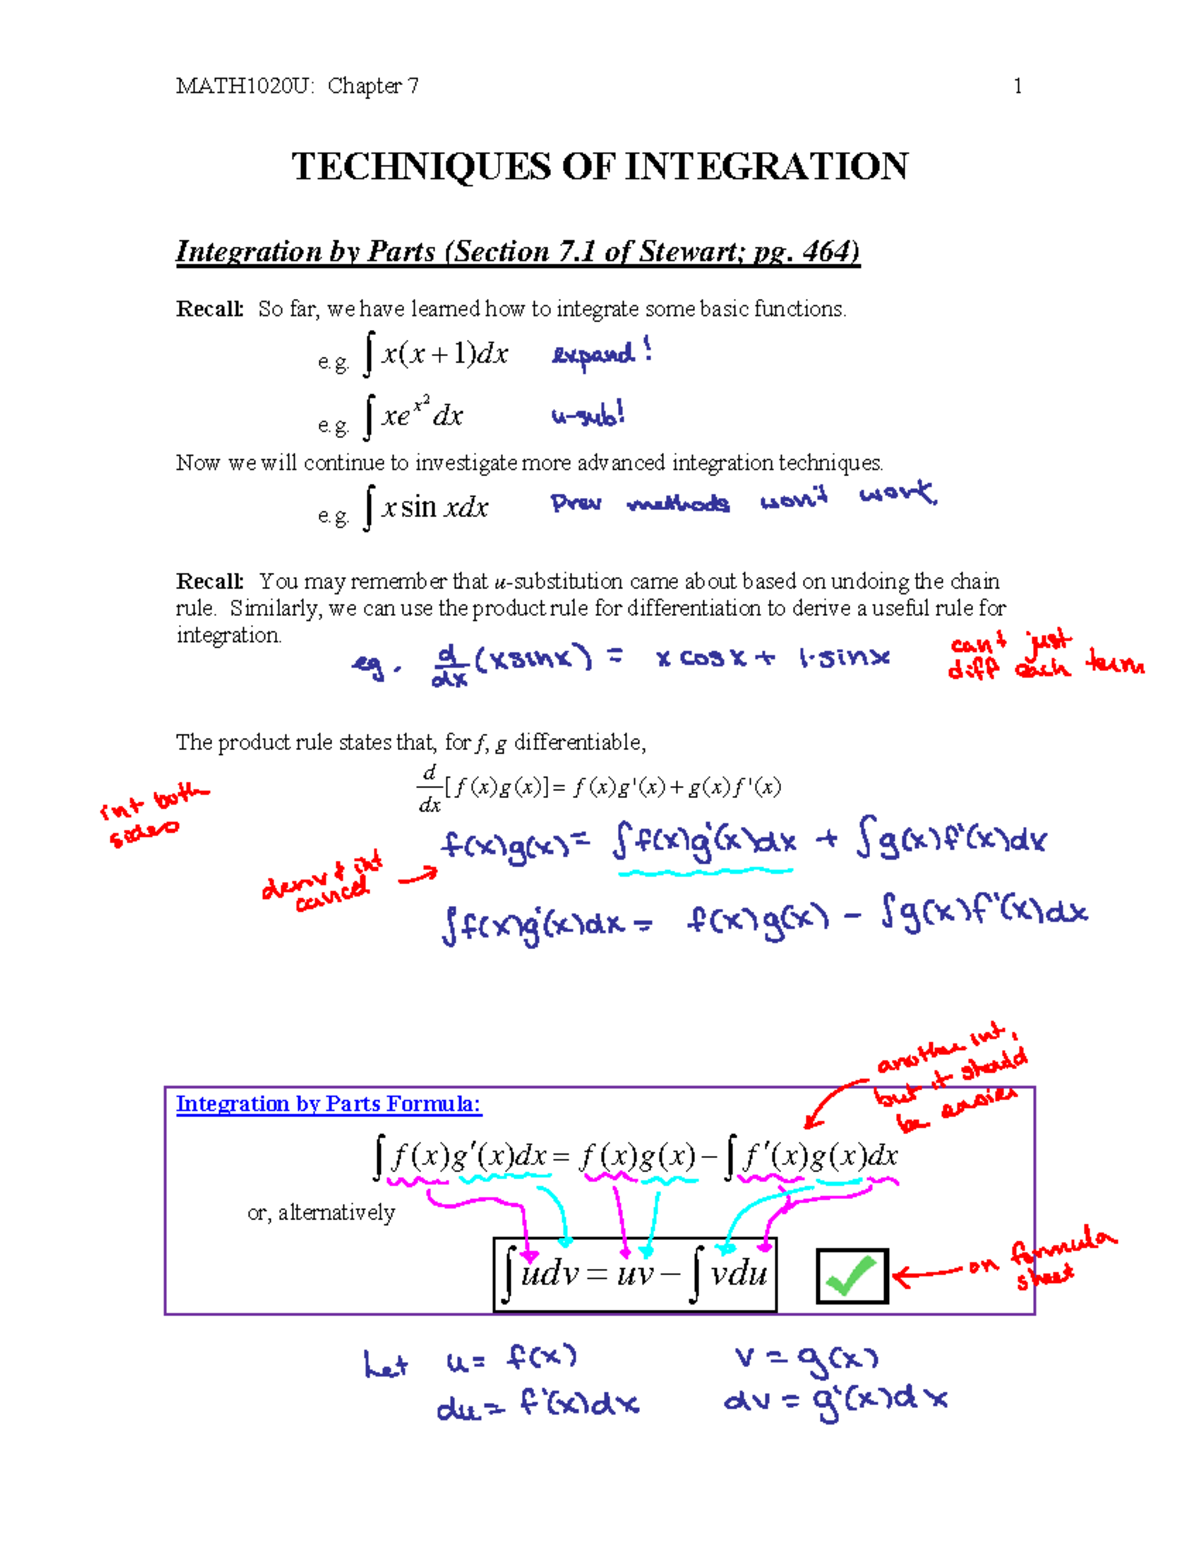 MATH1020U: Chapter 7 1
TECHNIQUES OF INTEGRATION
Integration by Parts (Section 7.1 of Stewart; pg. 464)
Recall: So far, we have learned how to integrate some basic functions.
e.g. ∫x(x+1)dx expand!
e.g. ∫xe^{x^2}dx u-sub!
Now we will continue to investigate more advanced integration techniques.
e.g. ∫x sin xdx Prev methods won't work.
Recall: You may remember that u-substitution came about based on undoing the chain
rule. Similarly, we can use the product rule for differentiation to derive a useful rule for
integration.
eg. d/dx (xsinx) = x cosx + 1·sinx
can't just
diff each term
The product rule states that, for f, g differentiable,
d/dx [f(x)g(x)] = f(x)g'(x) + g(x)f'(x)
int both
sides
f(x)g(x) = ∫f(x)g'(x)dx + ∫g(x)f'(x)dx
deriv & int
cancel
∫f(x)g'(x)dx = f(x)g(x) - ∫g(x)f'(x)dx
another int,
but it should
be easier
Integration by Parts Formula:
∫f(x)g′(x)dx = f(x)g(x) − ∫f′(x)g(x)dx
or, alternatively
∫udv = uv − ∫vdu
on formula
sheet
Let u = f(x) v = g(x)
du = f'(x)dx dv = g'(x)dx